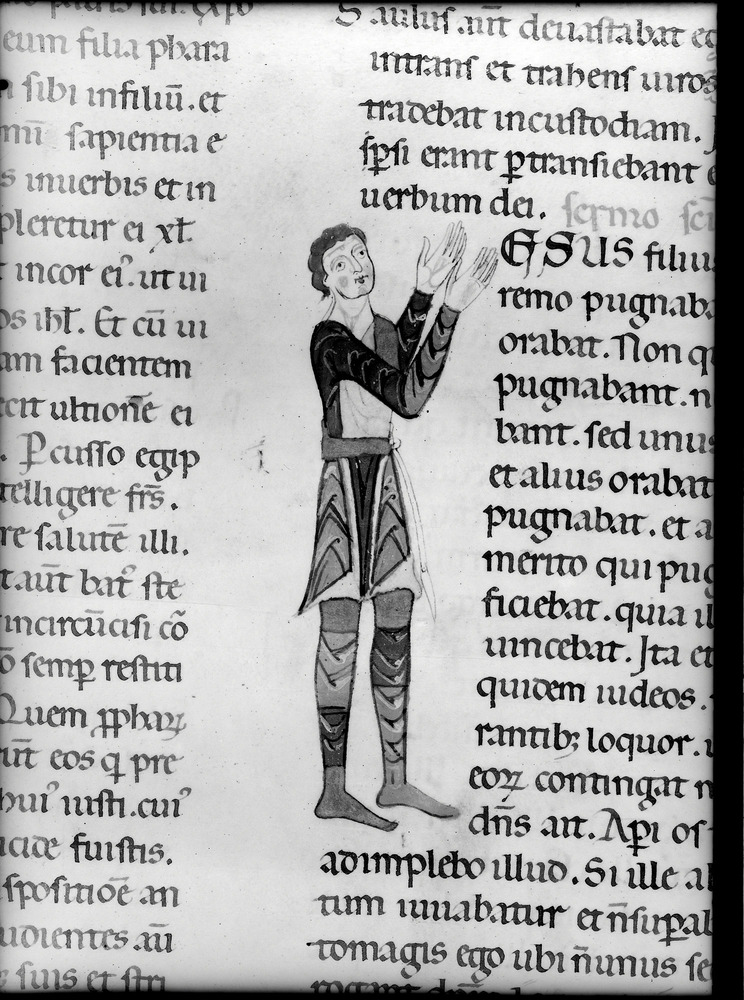 eum filia phara
sibi infiliū. et
sapientia e
s inuerbis et in
pleretur ei xł
t incor eiꝰ. ut ui
os ihł. Et cū ui
am facientem
ecit ultionē ei
. Pcusso egip
telligere frs̄.
re salutē illi.
t aūt bat̄ ste
incircūcisi cō
ō semꝑ restiti
Quem ꝓphaꝝ
rūt eos q pre
huiꝰ iusti. cuiꝰ
icide fuistis.
spositiōe an
udientes aū
suis et stri
Saulus aūt deuastabat ec
intrans et trahens uiros
tradebat incustodiam.
sꝑsi erant ꝑtransiebant
uerbum dei. sermo sci
IESUS filius
remo pugnab
orabat. Non q
pugnabant. n
bant. sed unus
et alius orabat
pugnabat. et a
merito qui pug
ficiebat. quia il
uincebat. Ita et
quidem iudeos.
rantibꝫ loquor. u
eoꝝ contingat n
dn̄s ait. Aꝑi os
adimplebo illud. Si ille al
tum iuuabatur et n̄ suꝑab
tomagis ego ubi n̄ unus se